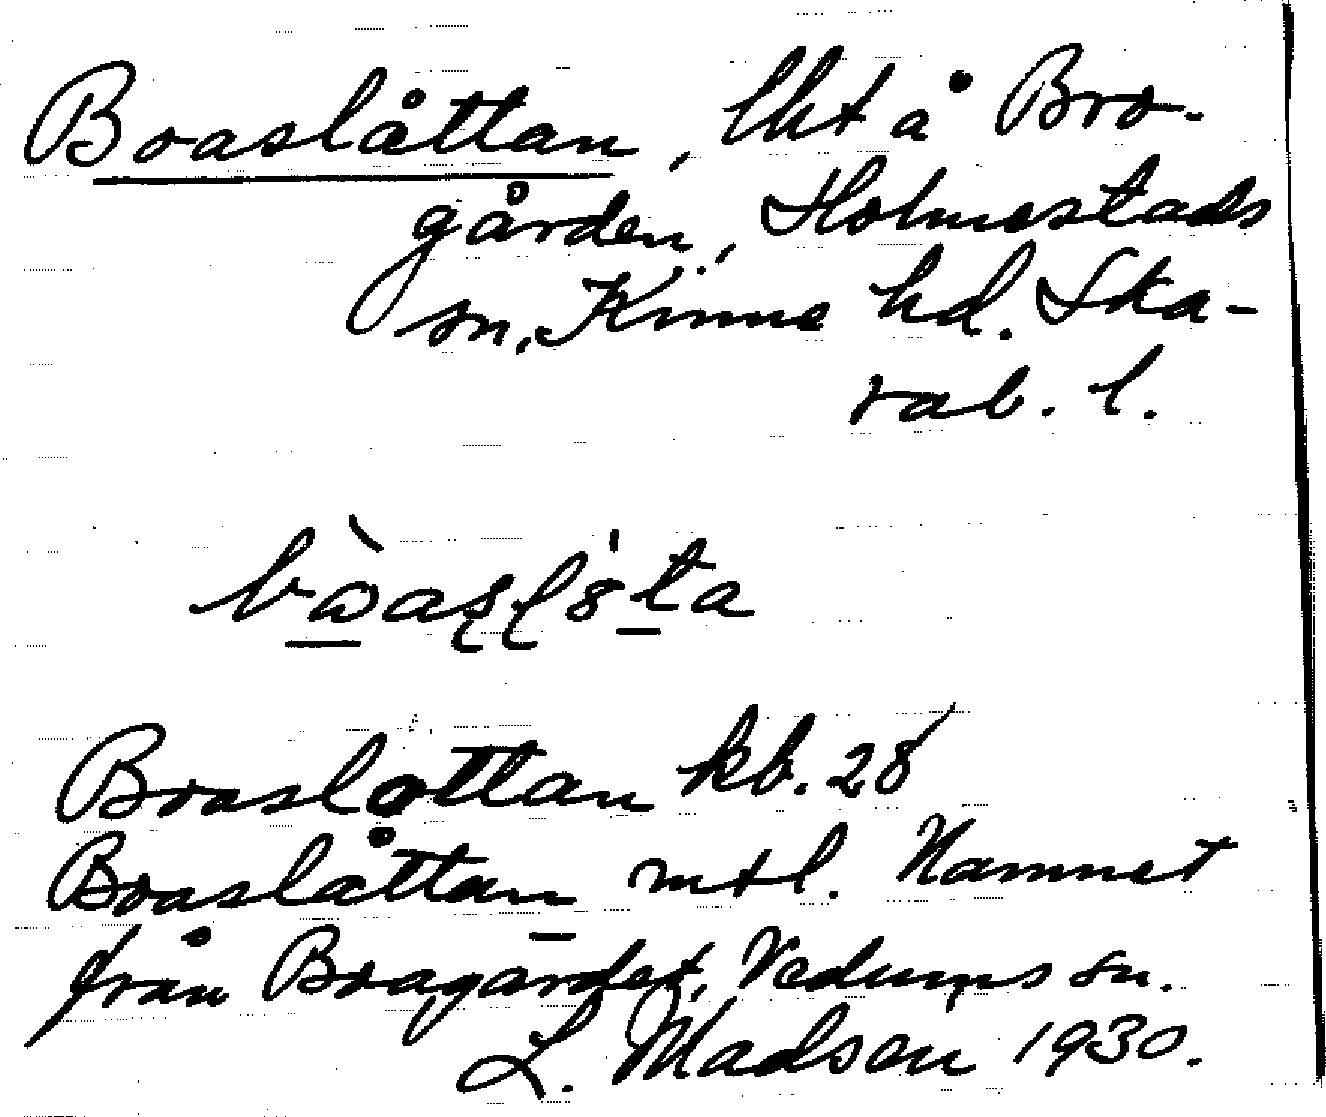 Boaslåttan, lht å Bro-
gården, Holmestads
sn, Kinne hd. Ska-
rab. l.
Boaslottan kb. 28
Boaslåttan mtl. Namnet
från Boagärdet, Vedums sn.
L. Madsen 1930.